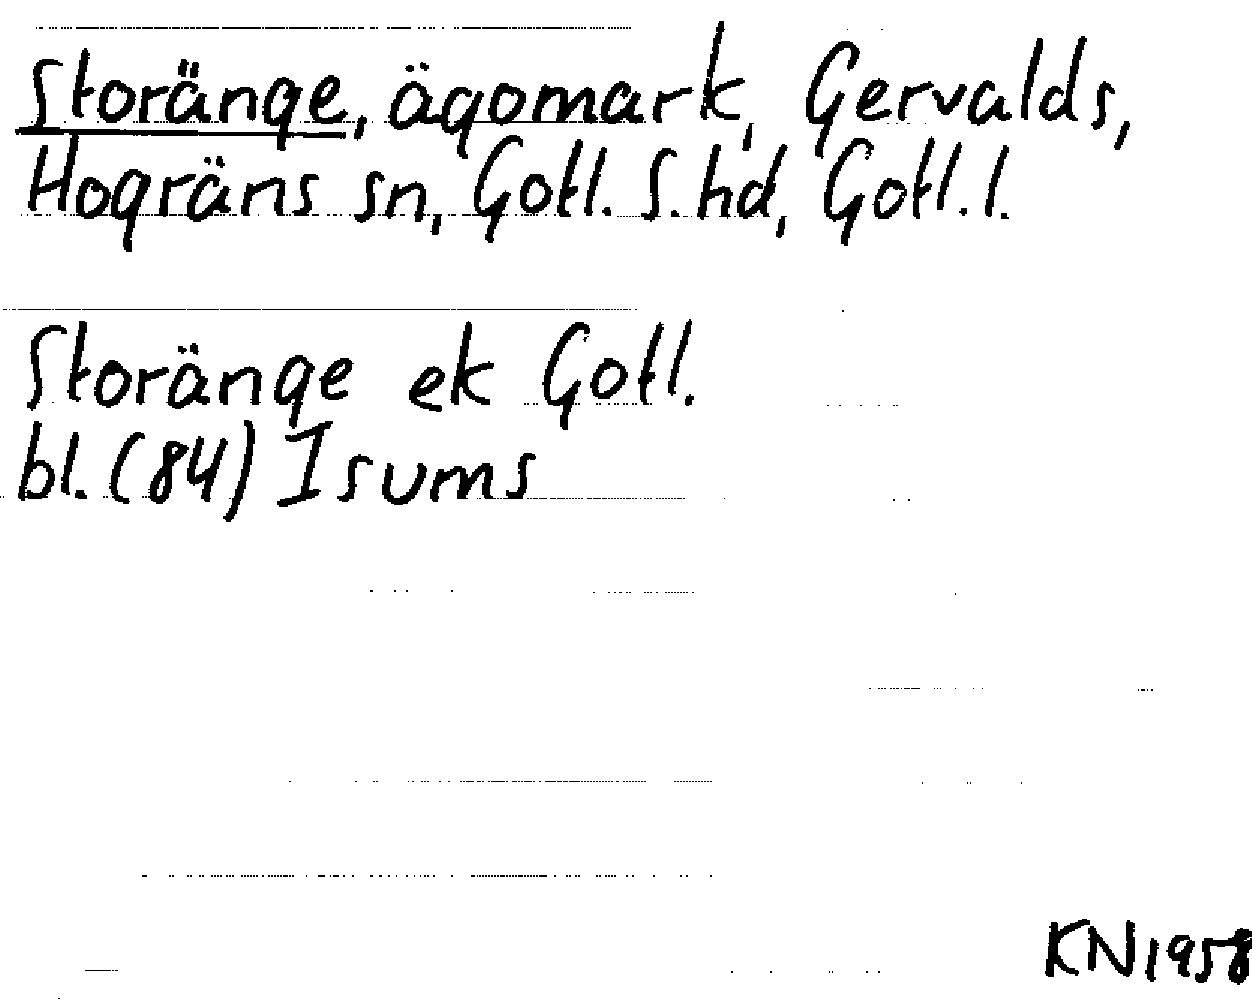 Storänge, ägomark, Gervalds,
Hogräns sn, Gotl. S. hd, Gotl. l.
Storänge ek Gotl.
bl. (84) Isums
KN1958